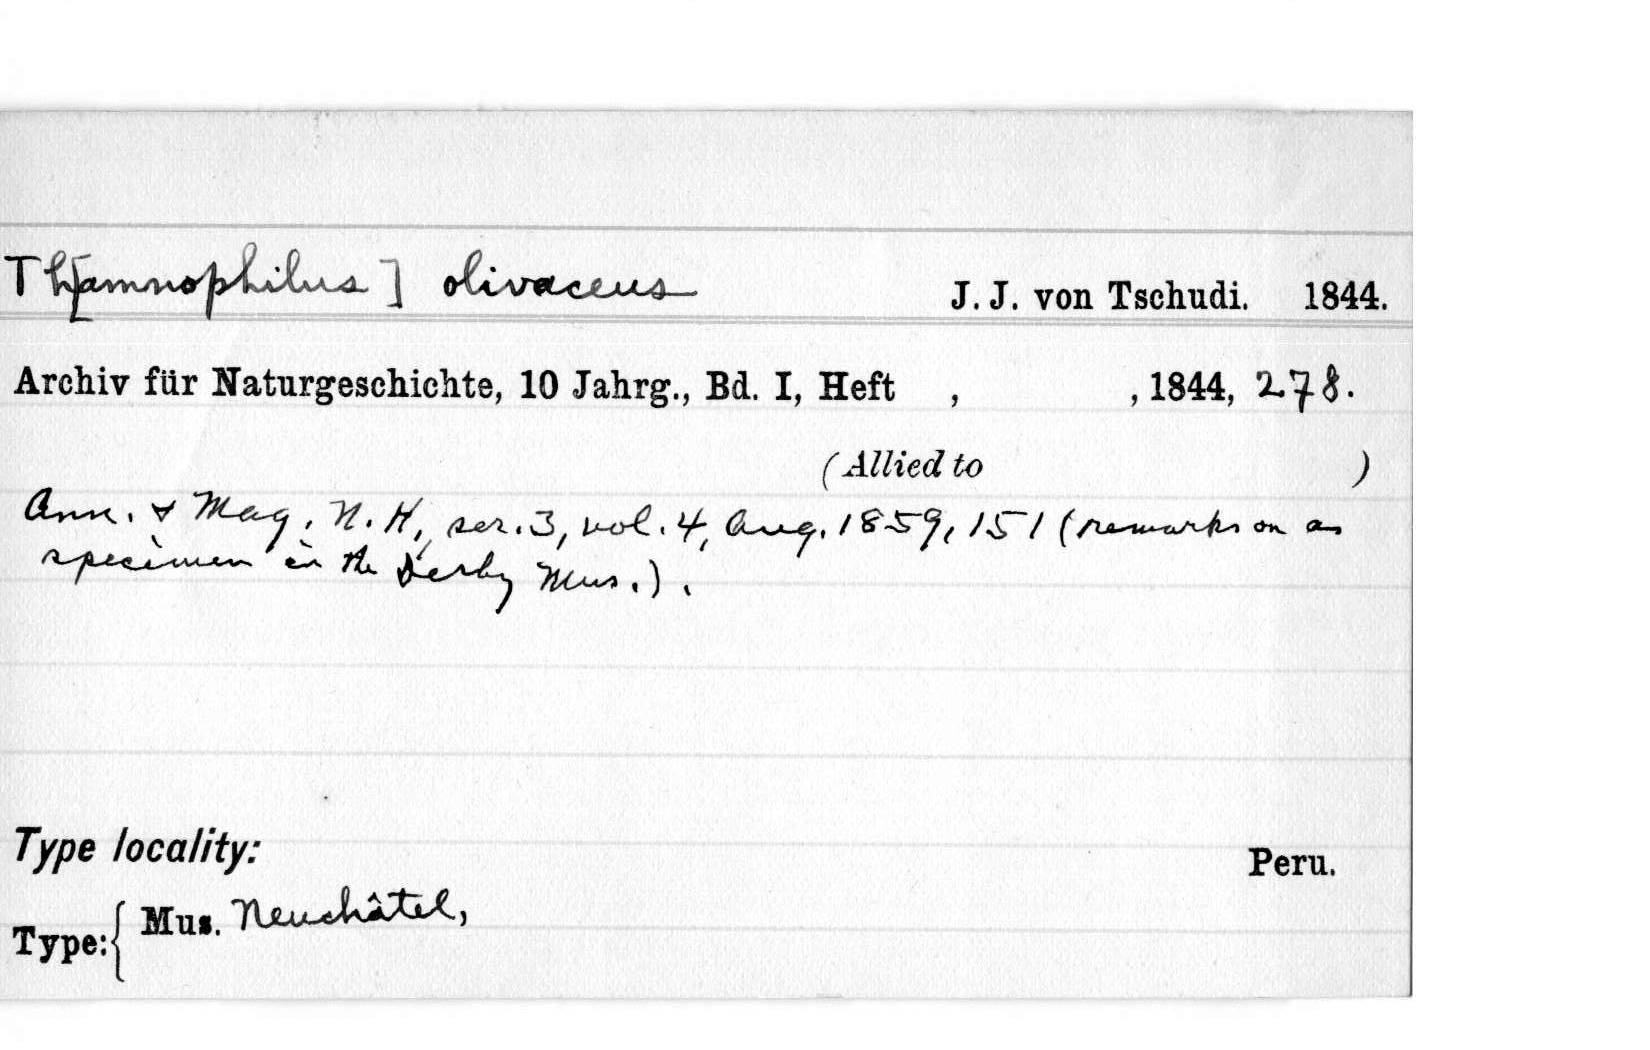 Th[amnophilus] olivaceus J. J. von Tschudi. 1844.
Archiv für Naturgeschichte, 10 Jahrg., Bd. I, Heft , , 1844, 278.
(Allied to )
Ann. & Mag. N. H., ser. 3, vol. 4, Aug. 1859, 151 (remarks on a
specimen in the Derby Mus.).
Type locality: Peru.
Type: { Mus. Neuchâtel,